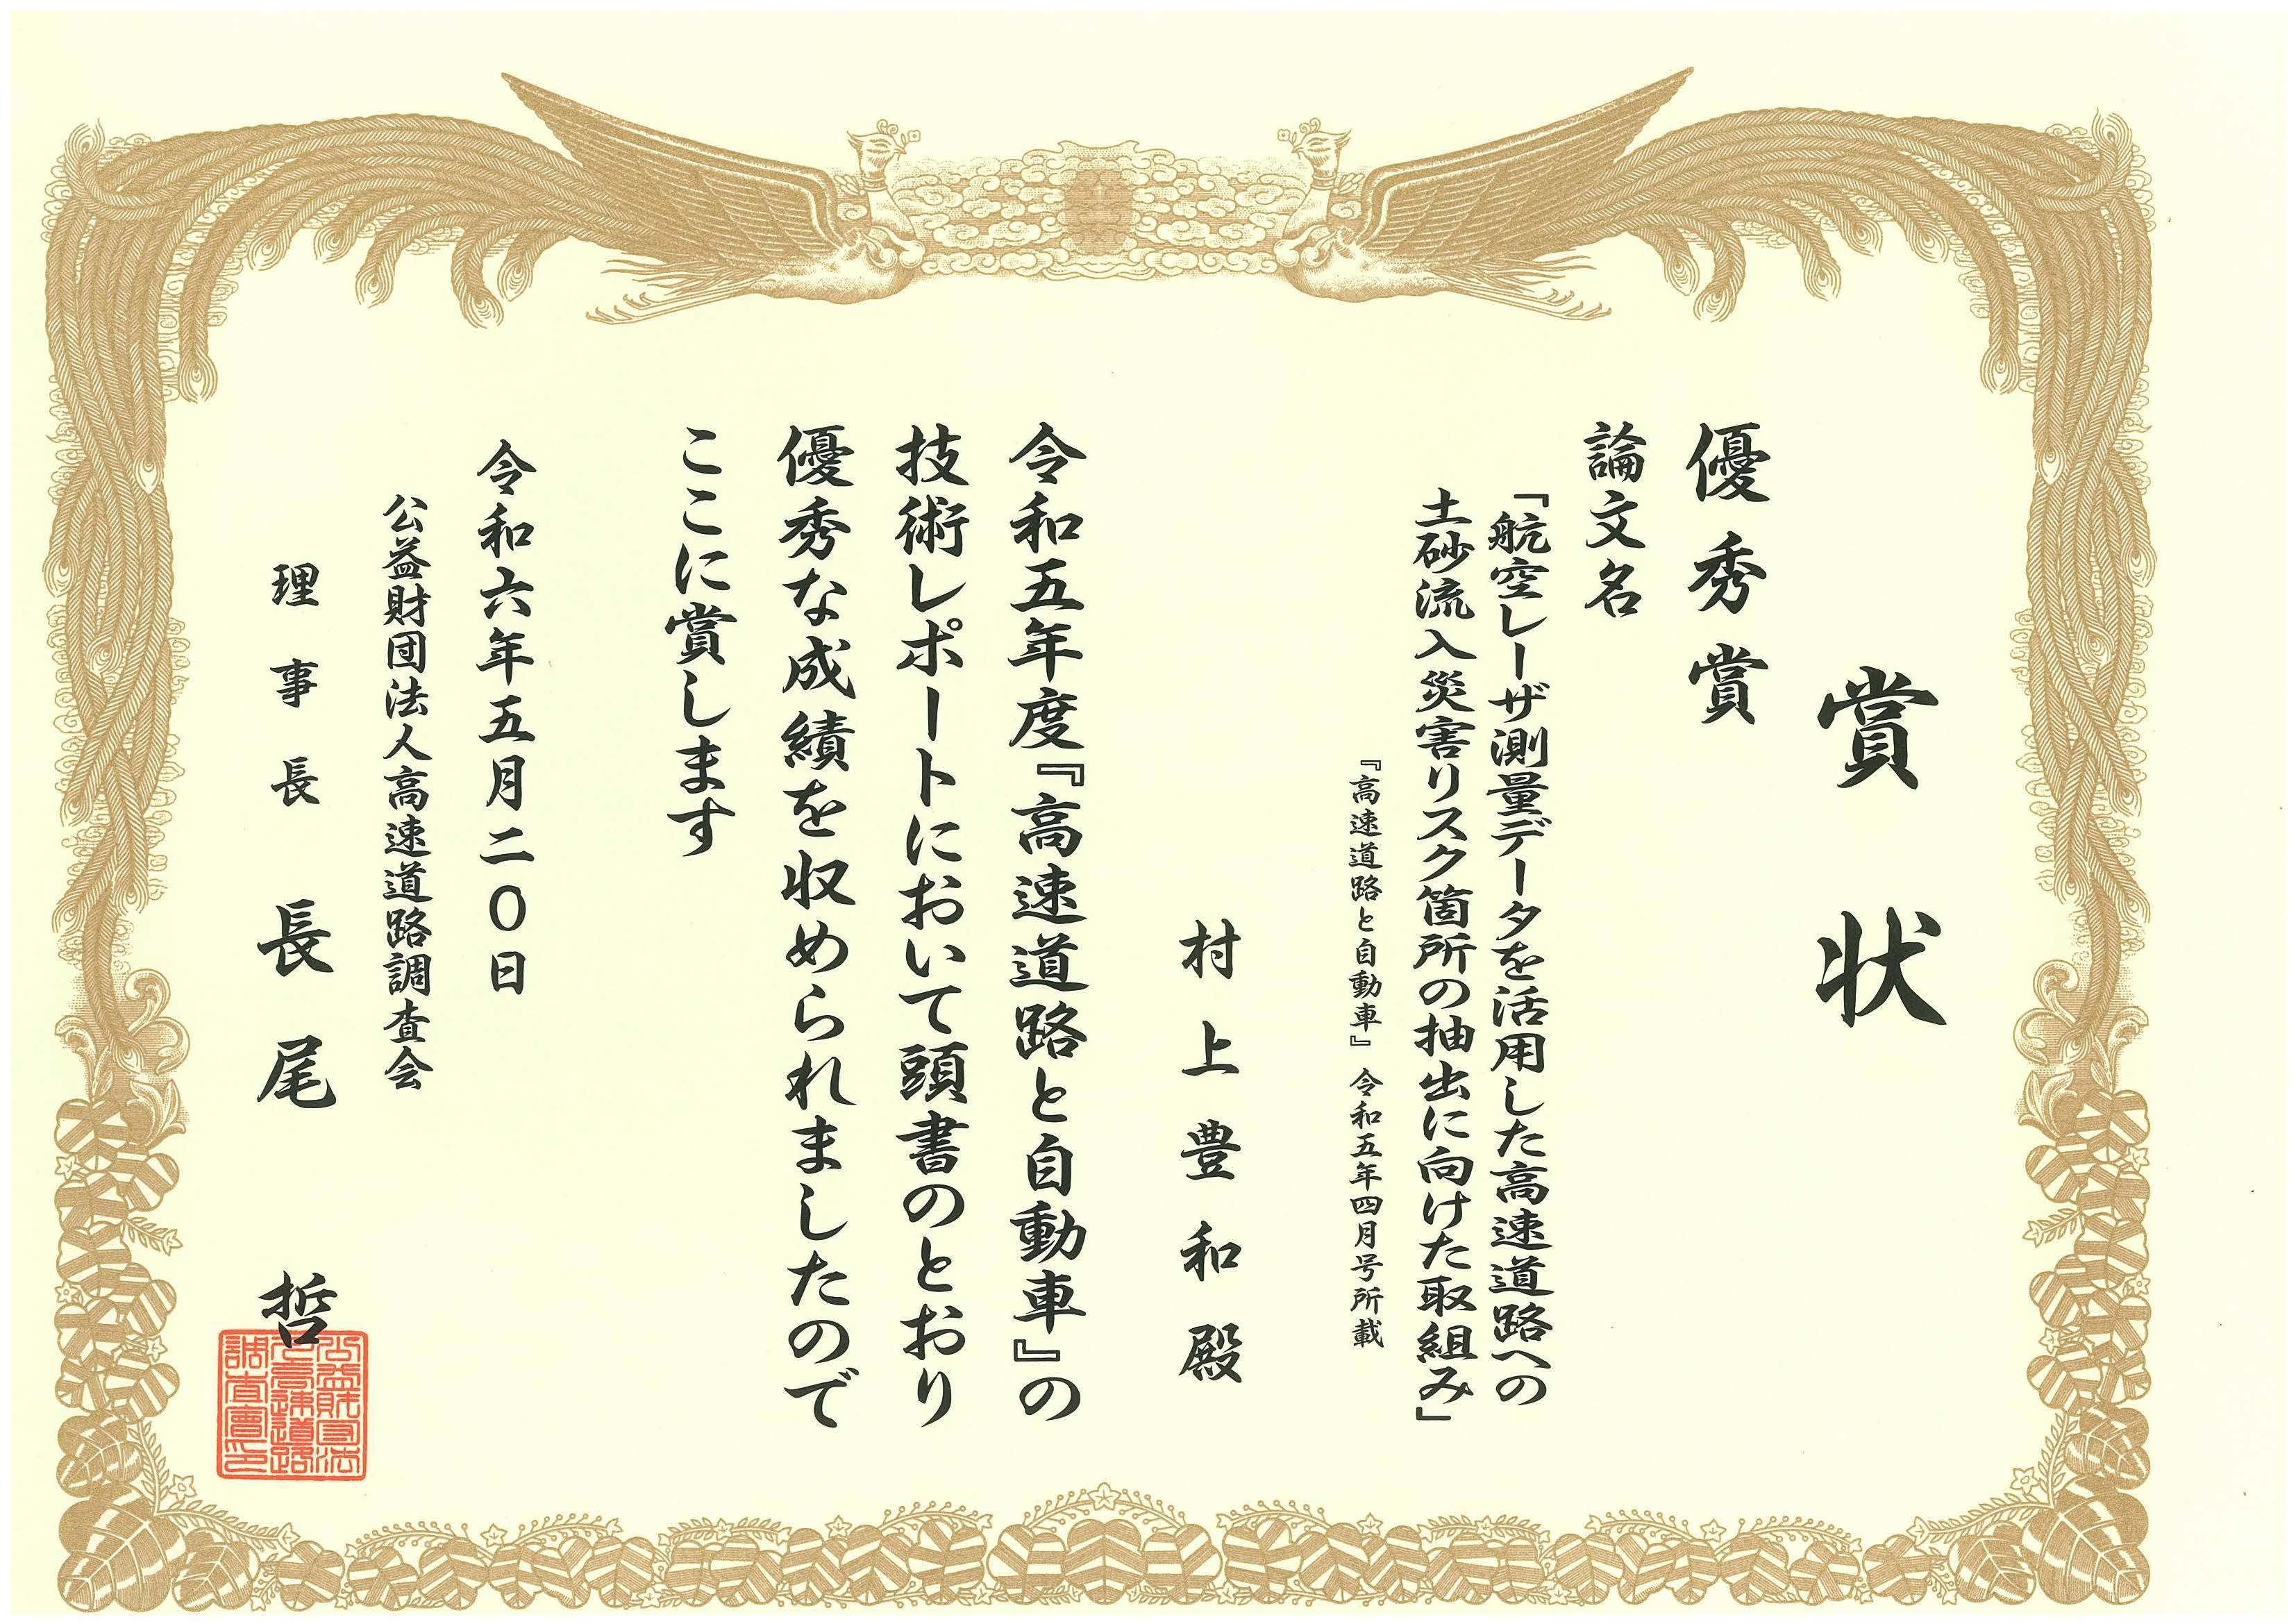 賞状
優秀賞
論文名
「航空レーザ測量データを活用した高速道路への
土砂流入災害リスク箇所の抽出に向けた取組み」
『高速道路と自動車』令和五年四月号所載
村上豊和殿
令和五年度『高速道路と自動車』の
技術レポートにおいて頭書のとおり
優秀な成績を収められましたので
ここに賞します
令和六年五月二〇日
公益財団法人高速道路調査会
理事長 長尾 哲